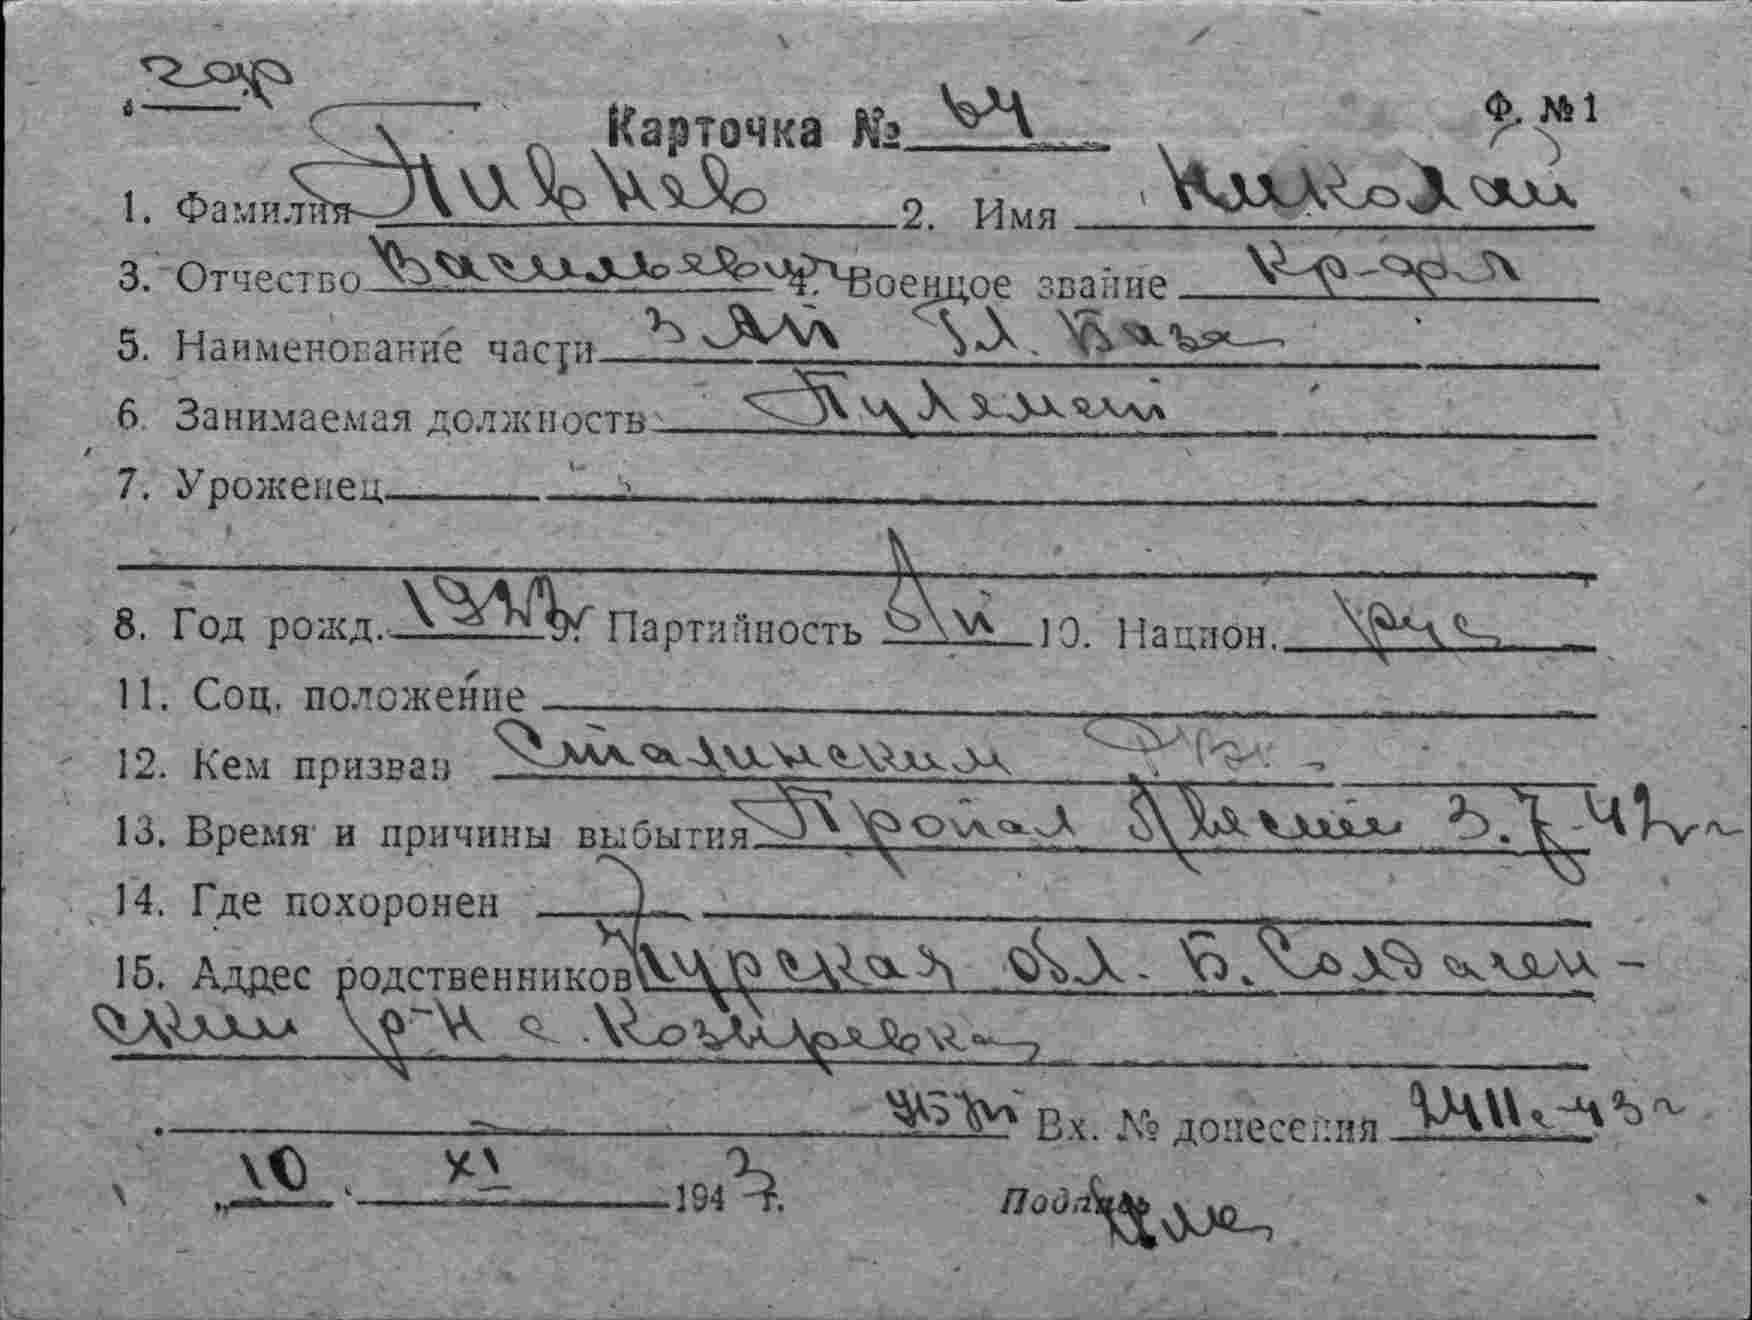 Карточка № 64
Ф. № 1
1. Фамилия Пивнев 2. Имя Николай
3. Отчество Васильевич 4. Военное звание Кр-фл
5. Наименование части Гл. База
6. Занимаемая должность Пулеметч
7. Уроженец
8. Год рожд. 9. Партийность 10. Национ. рус
11. Соц. положение
12. Кем призван Сталинским
13. Время и причины выбытия Пропал 3.7.42 г
14. Где похоронен
15. Адрес родственников Курская обл. Б. Солдатс-
ский р-н с. Козыревка
Вх. № донесения
10 XI 1943 г.